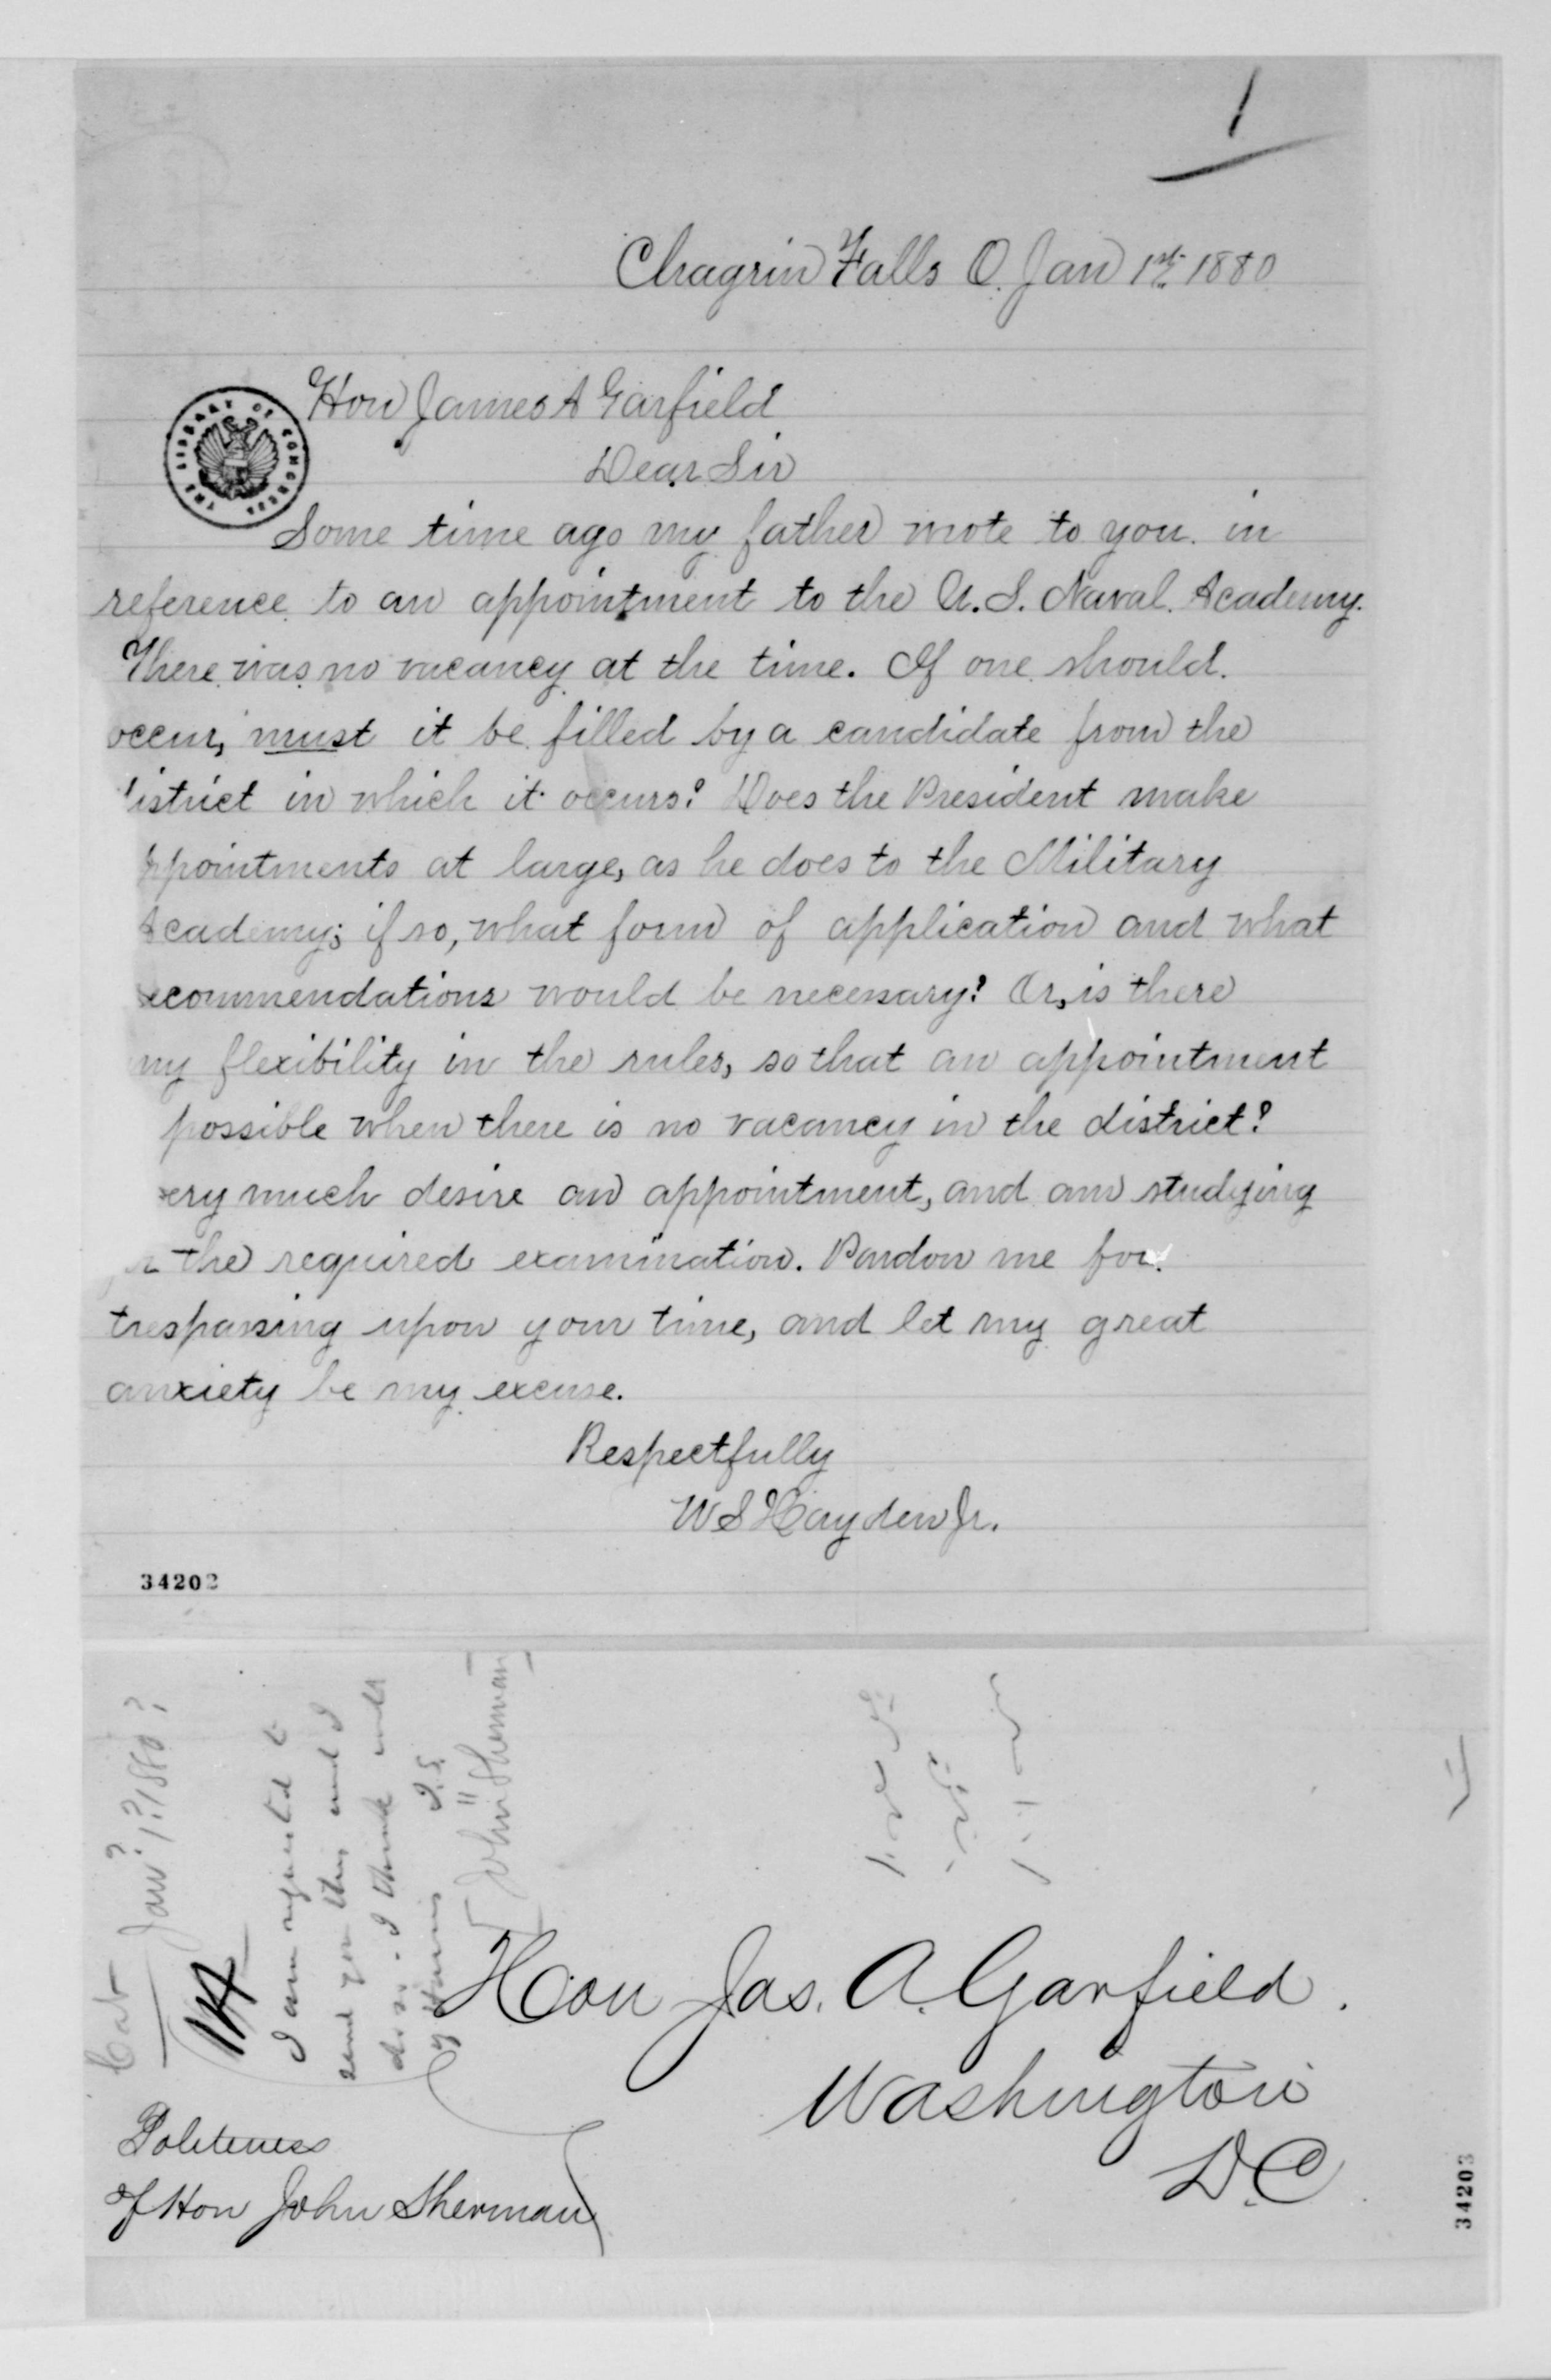 1
Chagrin Falls O. Jan 1st 1880
Hon James A Garfield
THE LIBRARY OF CONGRESS
Dear Sir
Some time ago my father wrote to you in
reference to an appointment to the U.S. Naval Academy.
There was no vacancy at the time. If one should
occur, must it be filled by a candidate from the
istrict in which it occurs? Does the President make
ppointments at large, as he does to the Military
Academy; if so, what form of application and what
ecommendations would be necessary? Or, is there
ny flexibility in the rules, so that an appointment
possible when there is no vacancy in the district?
ery much desire an appointment, and am studying
r the required examination. Pardon me for
trespassing upon your time, and let my great
anxiety be my excuse.
Respectfully
W S Hayden Jr.
34202
Cat Jan 1? 1880?
I am requested to
send you this and I
do so. I think well
of Harris J.S.
[John Sherman]
Hon Jas. A. Garfield.
Washington
D.C.
Politeness
of Hon John Sherman
34203